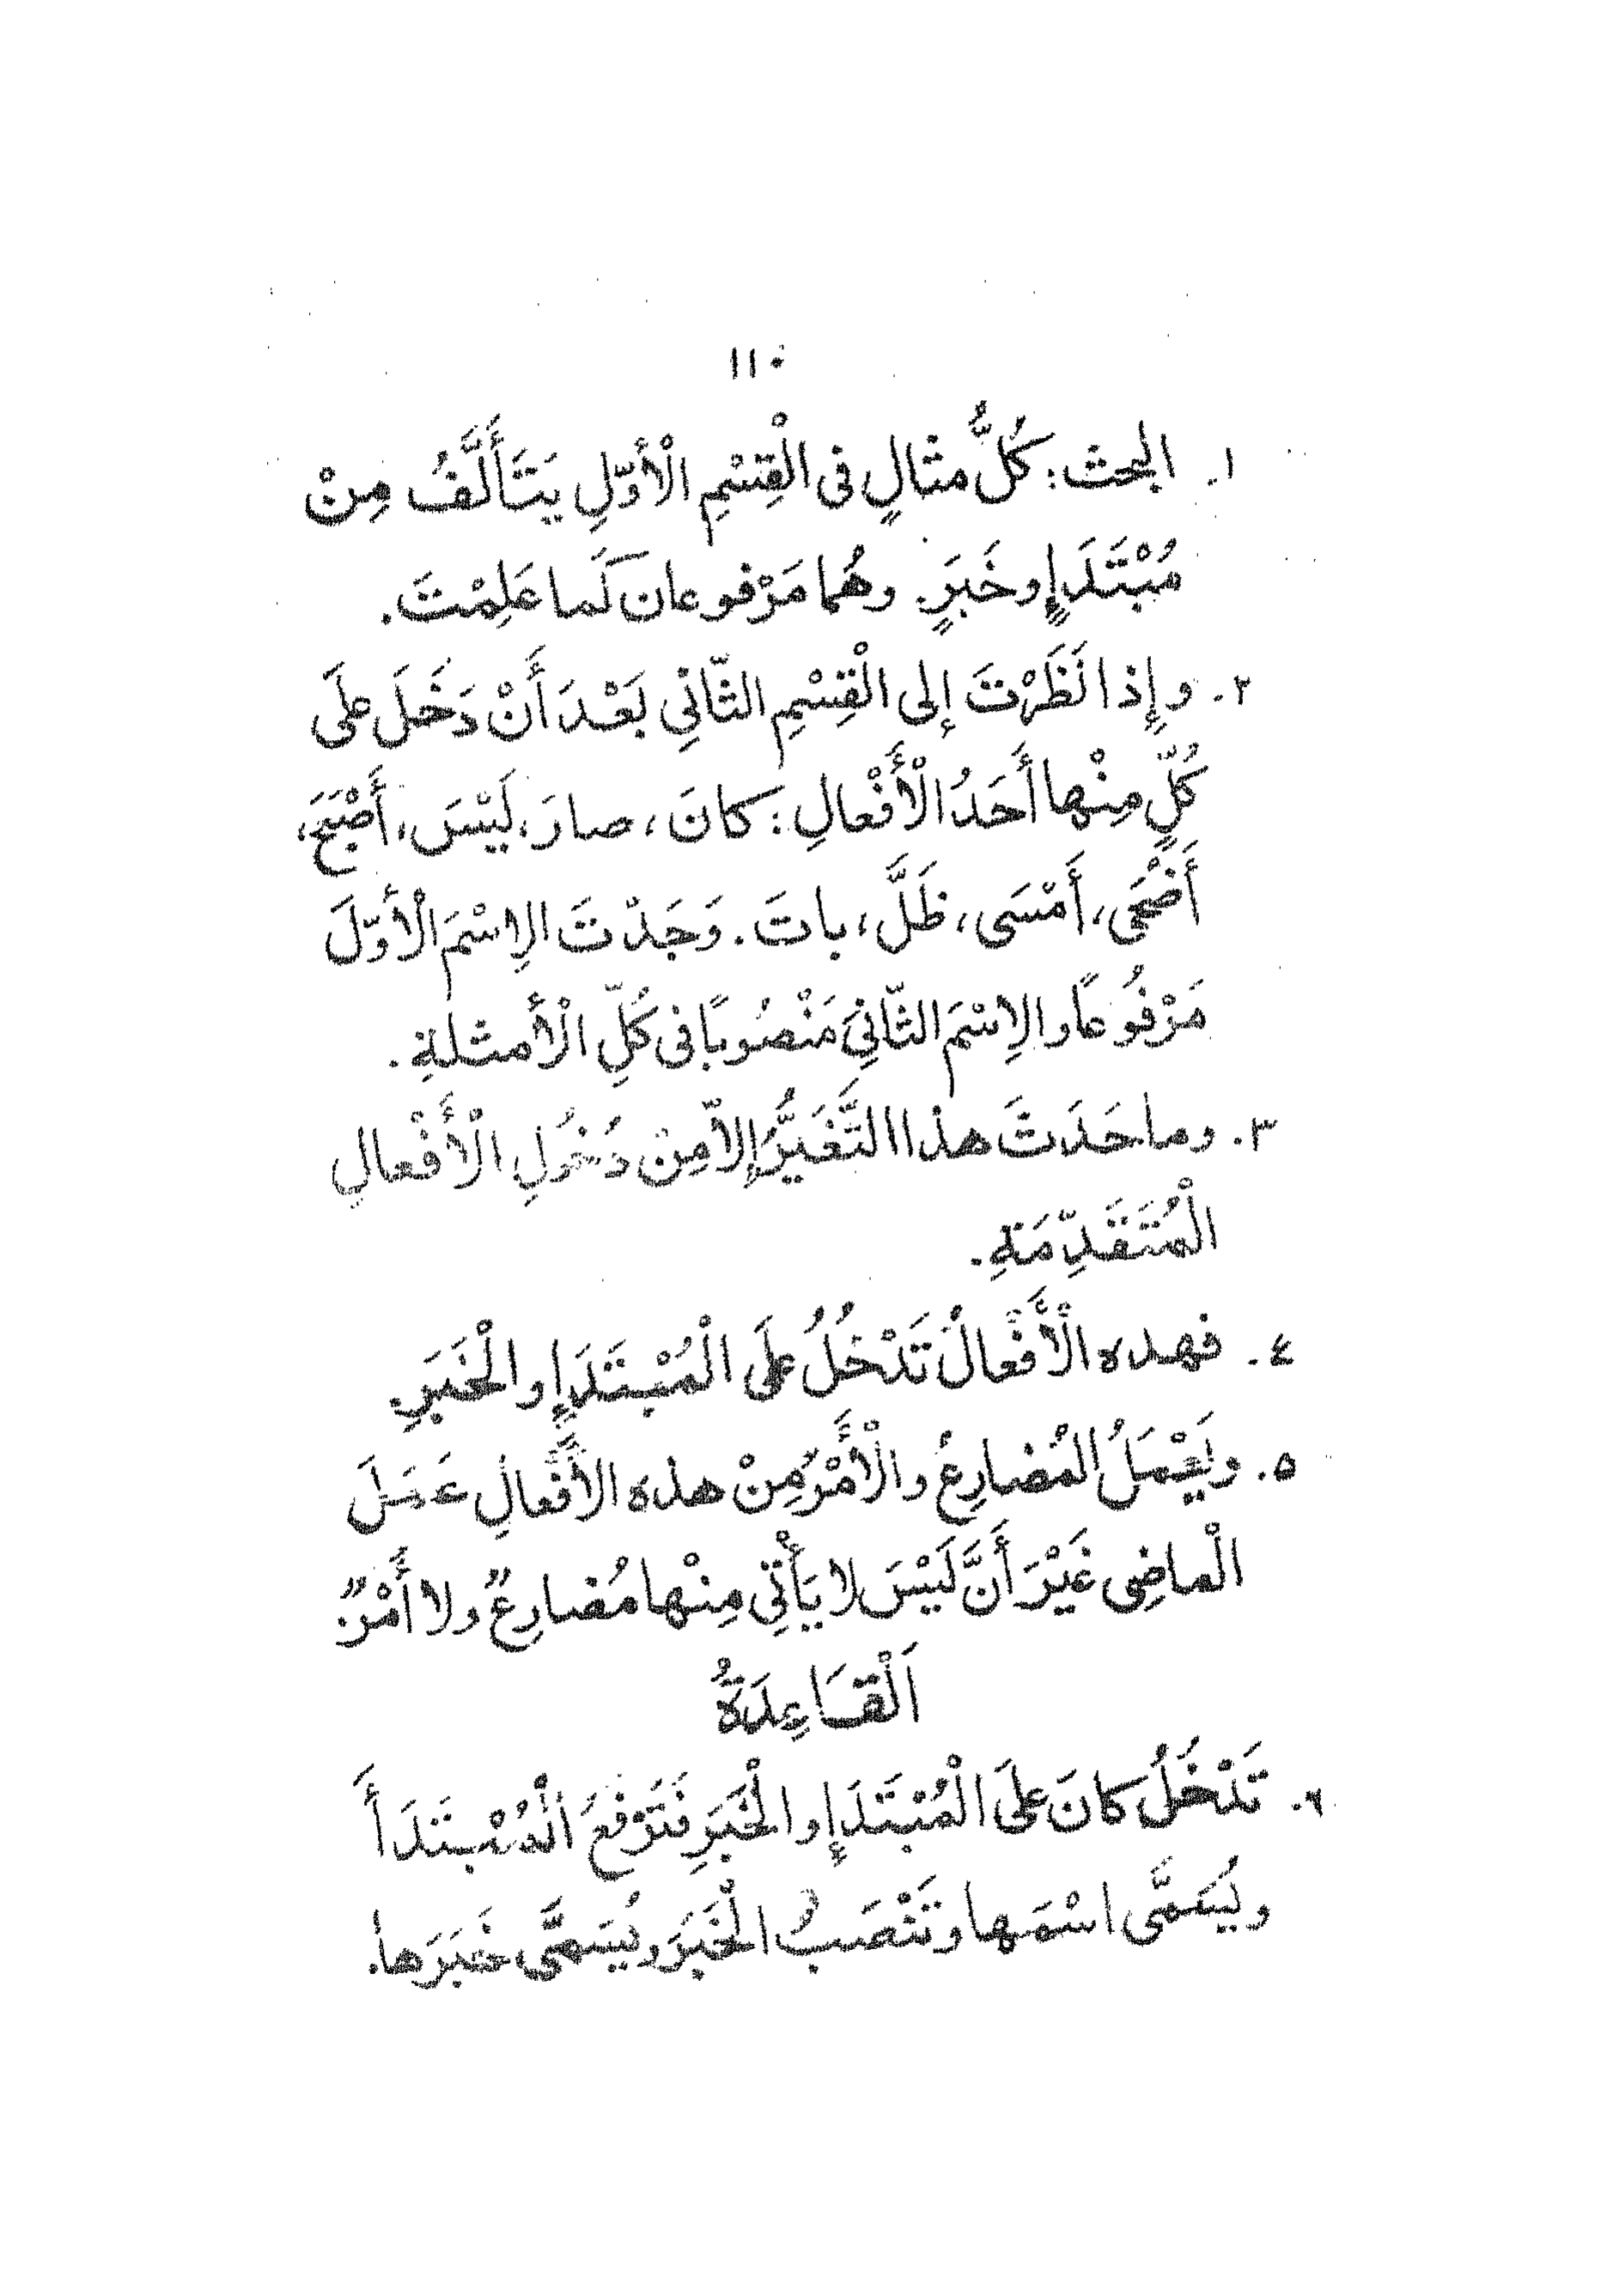 ١١٠
١. البحث: كُلُّ مثالٍ فى الْقِسْمِ الْأَوّلِ يَتَأَلَّفُ مِنْ
مُبْتَدَإٍ وخَبَرٍ. وهُما مَرْفوعان كَما عَلِمْتَ.
٢. وإِذا نَظَرْتَ إِلى الْقِسْمِ الثّانِي بَعْدَ أَنْ دَخَلَ على
كُلٍّ مِنْها أَحَدُ الْأَفْعالِ: كانَ، صارَ، لَيْسَ، أَصْبَحَ،
أَضْحَى، أَمْسَى، ظَلَّ، باتَ. وَجَدْتَ الِاسْمَ الْأَوّلَ
مَرْفُوعًا والِاسْمَ الثّانِيَ مَنْصُوبًا فى كُلِّ الْأَمثلةِ.
٣. وما حَدَثَ هذا التَّغَيُّرُ إِلاّ مِنْ دُخُولِ الْأَفْعالِ
الْمُتَقَدِّمَةِ.
٤. فهذه الْأَفْعالُ تَدْخُلُ عَلَى الْمُبْتَدَإِ والْخَبَرِ.
٥. ويَعْمَلُ الْمُضارِعُ والْأَمْرُ مِنْ هذه الأَفْعالِ عَمَلَ
الْماضِى غَيْرَ أَنَّ لَيْسَ لا يَأْتِي مِنْها مُضارِعٌ ولا أَمْرٌ.
اَلْقَاعِدَةُ
٦. تَدْخُلُ كانَ عَلَى الْمُبْتَدَإِ والْخَبَرِ فَتَرْفَعُ الْمُبْتَدَأَ
ويُسَمَّى اسْمَها وتَنْصَبُ الْخَبَرَ ويُسَمَّى خَبَرَها.